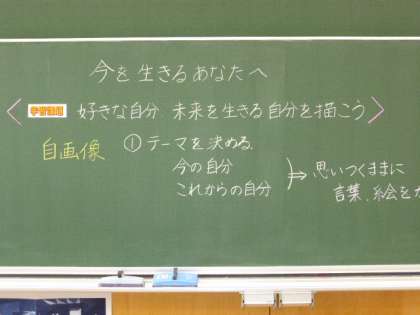 今を生きるあなたへ
〈 学習課題 好きな自分 未来を生きる自分を描こう 〉
自画像 ① テーマを決める
今の自分
これからの自分
思いつくままに
言葉、絵を